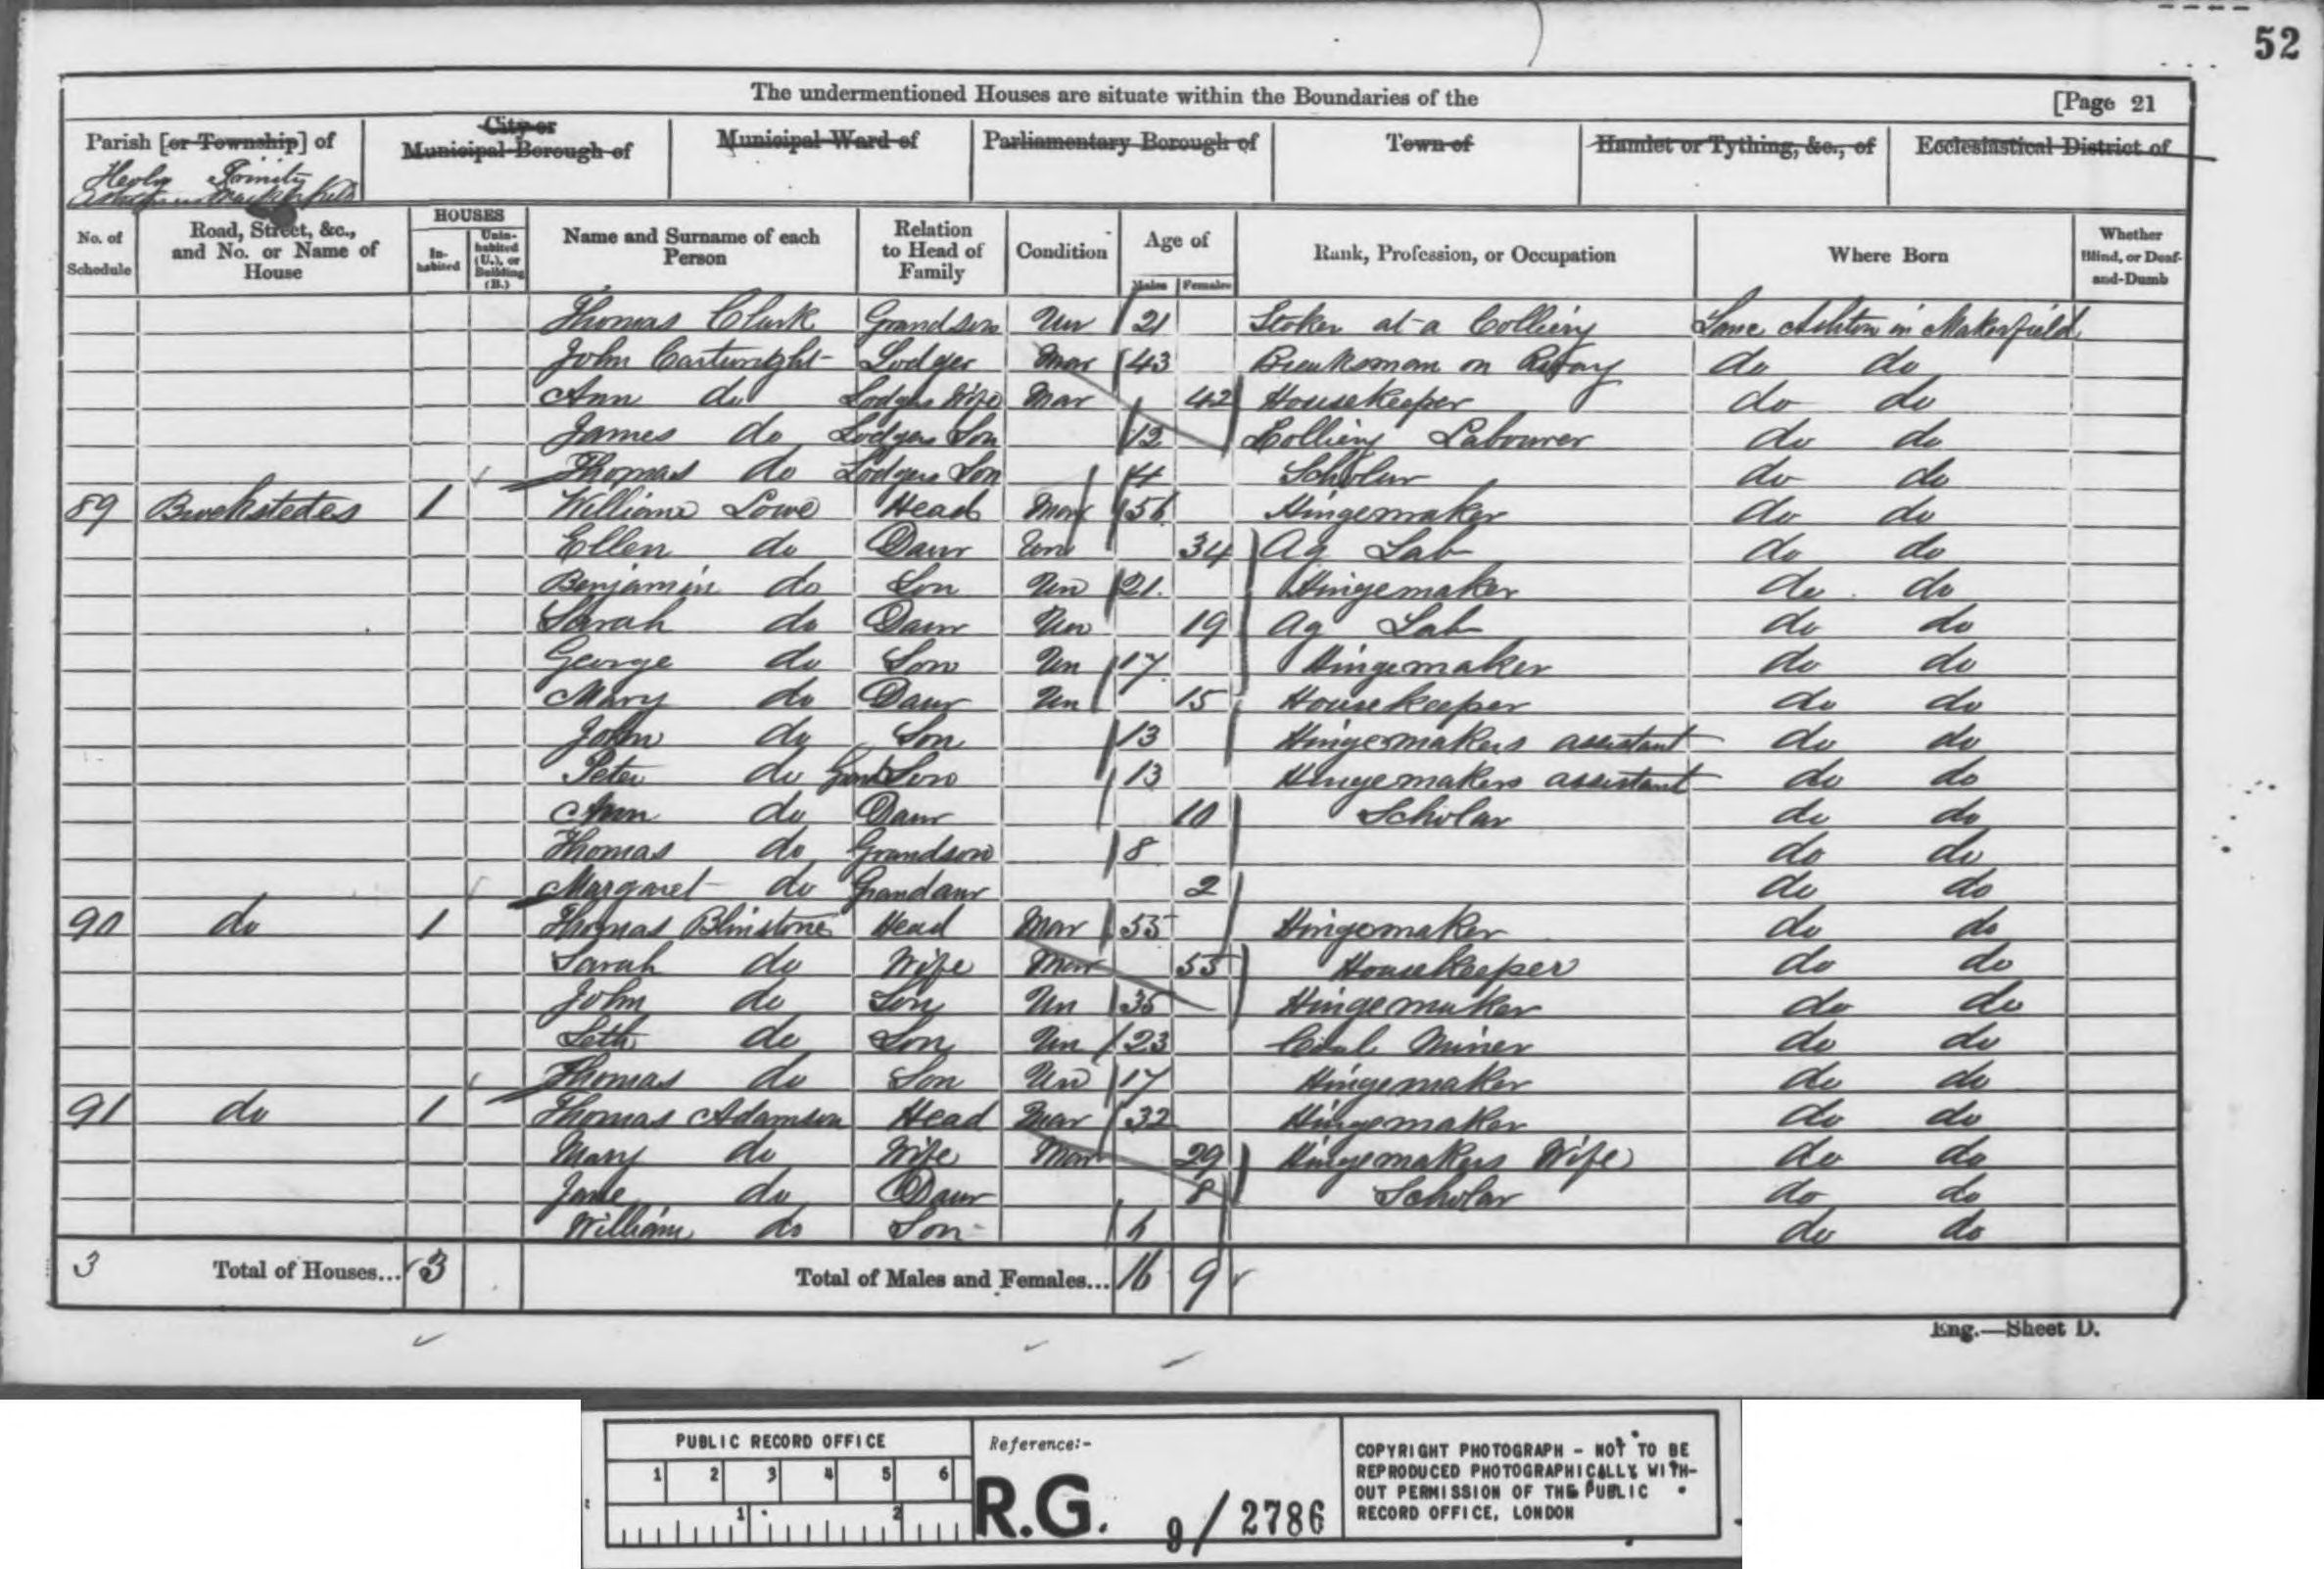 52
The undermentioned Houses are situate within the Boundaries of the [Page 21
Parish [or Township] of City or Municipal Borough of Municipal Ward of Parliamentary Borough of Town of Hamlet or Tything, &c., of Ecclesiastical District of
Holy Trinity
No. of Schedule Road, Street, &c., and No. or Name of House HOUSES In-habited Unin-habited (U.), or Building (B.) Name and Surname of each Person Relation to Head of Family Condition Age of Males Females Rank, Profession, or Occupation Where Born Whether Blind, or Deaf-and-Dumb
Thomas Clark Grandson Un 21 Stoker at a Colliery Lanc Ashton in Makerfield
John Cartwright Lodger Mar 43 Breaksman on do do
Ann do Lodgers Wife Mar 42 Housekeeper do do
James do Lodgers Son 12 Colliery Labourer do do
Thomas do Lodgers Son Scholar do do
89 1 William Lowe Head Mar 56 Hingemaker do do
Ellen do Daur Un 34 Ag Lab do do
Benjamin do Son Un 21 Hingemaker do do
Sarah do Daur Un 19 Ag Lab do do
George do Son Un 17 Hingemaker do do
Mary do Daur Un 15 Housekeeper do do
John do Son 13 Hingemakers assistant do do
Peter do Son 13 Hingemakers assistant do do
Ann do Daur 10 Scholar do do
Thomas do Grandson 8 do do
Margaret do Grandaur 2 do do
90 do 1 Thomas Blinstone Head Mar 55 Hingemaker do do
Sarah do Wife Mar 55 Housekeeper do do
John do Son Un 35 Hingemaker do do
Seth do Son Un 23 Coal Miner do do
Thomas do Son Un 17 Hingemaker do do
91 do 1 Thomas Adamson Head Mar 32 Hingemaker do do
Mary do Wife Mar 29 Hingemakers Wife do do
Jane do Daur 8 Scholar do do
William do Son 6 do do
3 Total of Houses... 3 Total of Males and Females... 16 9
Eng.—Sheet D.
PUBLIC RECORD OFFICE
1 2 3 4 5 6
1 2
Reference:-
R.G. 9/2786
COPYRIGHT PHOTOGRAPH - NOT TO BE
REPRODUCED PHOTOGRAPHICALLY WITH-
OUT PERMISSION OF THE PUBLIC
RECORD OFFICE, LONDON